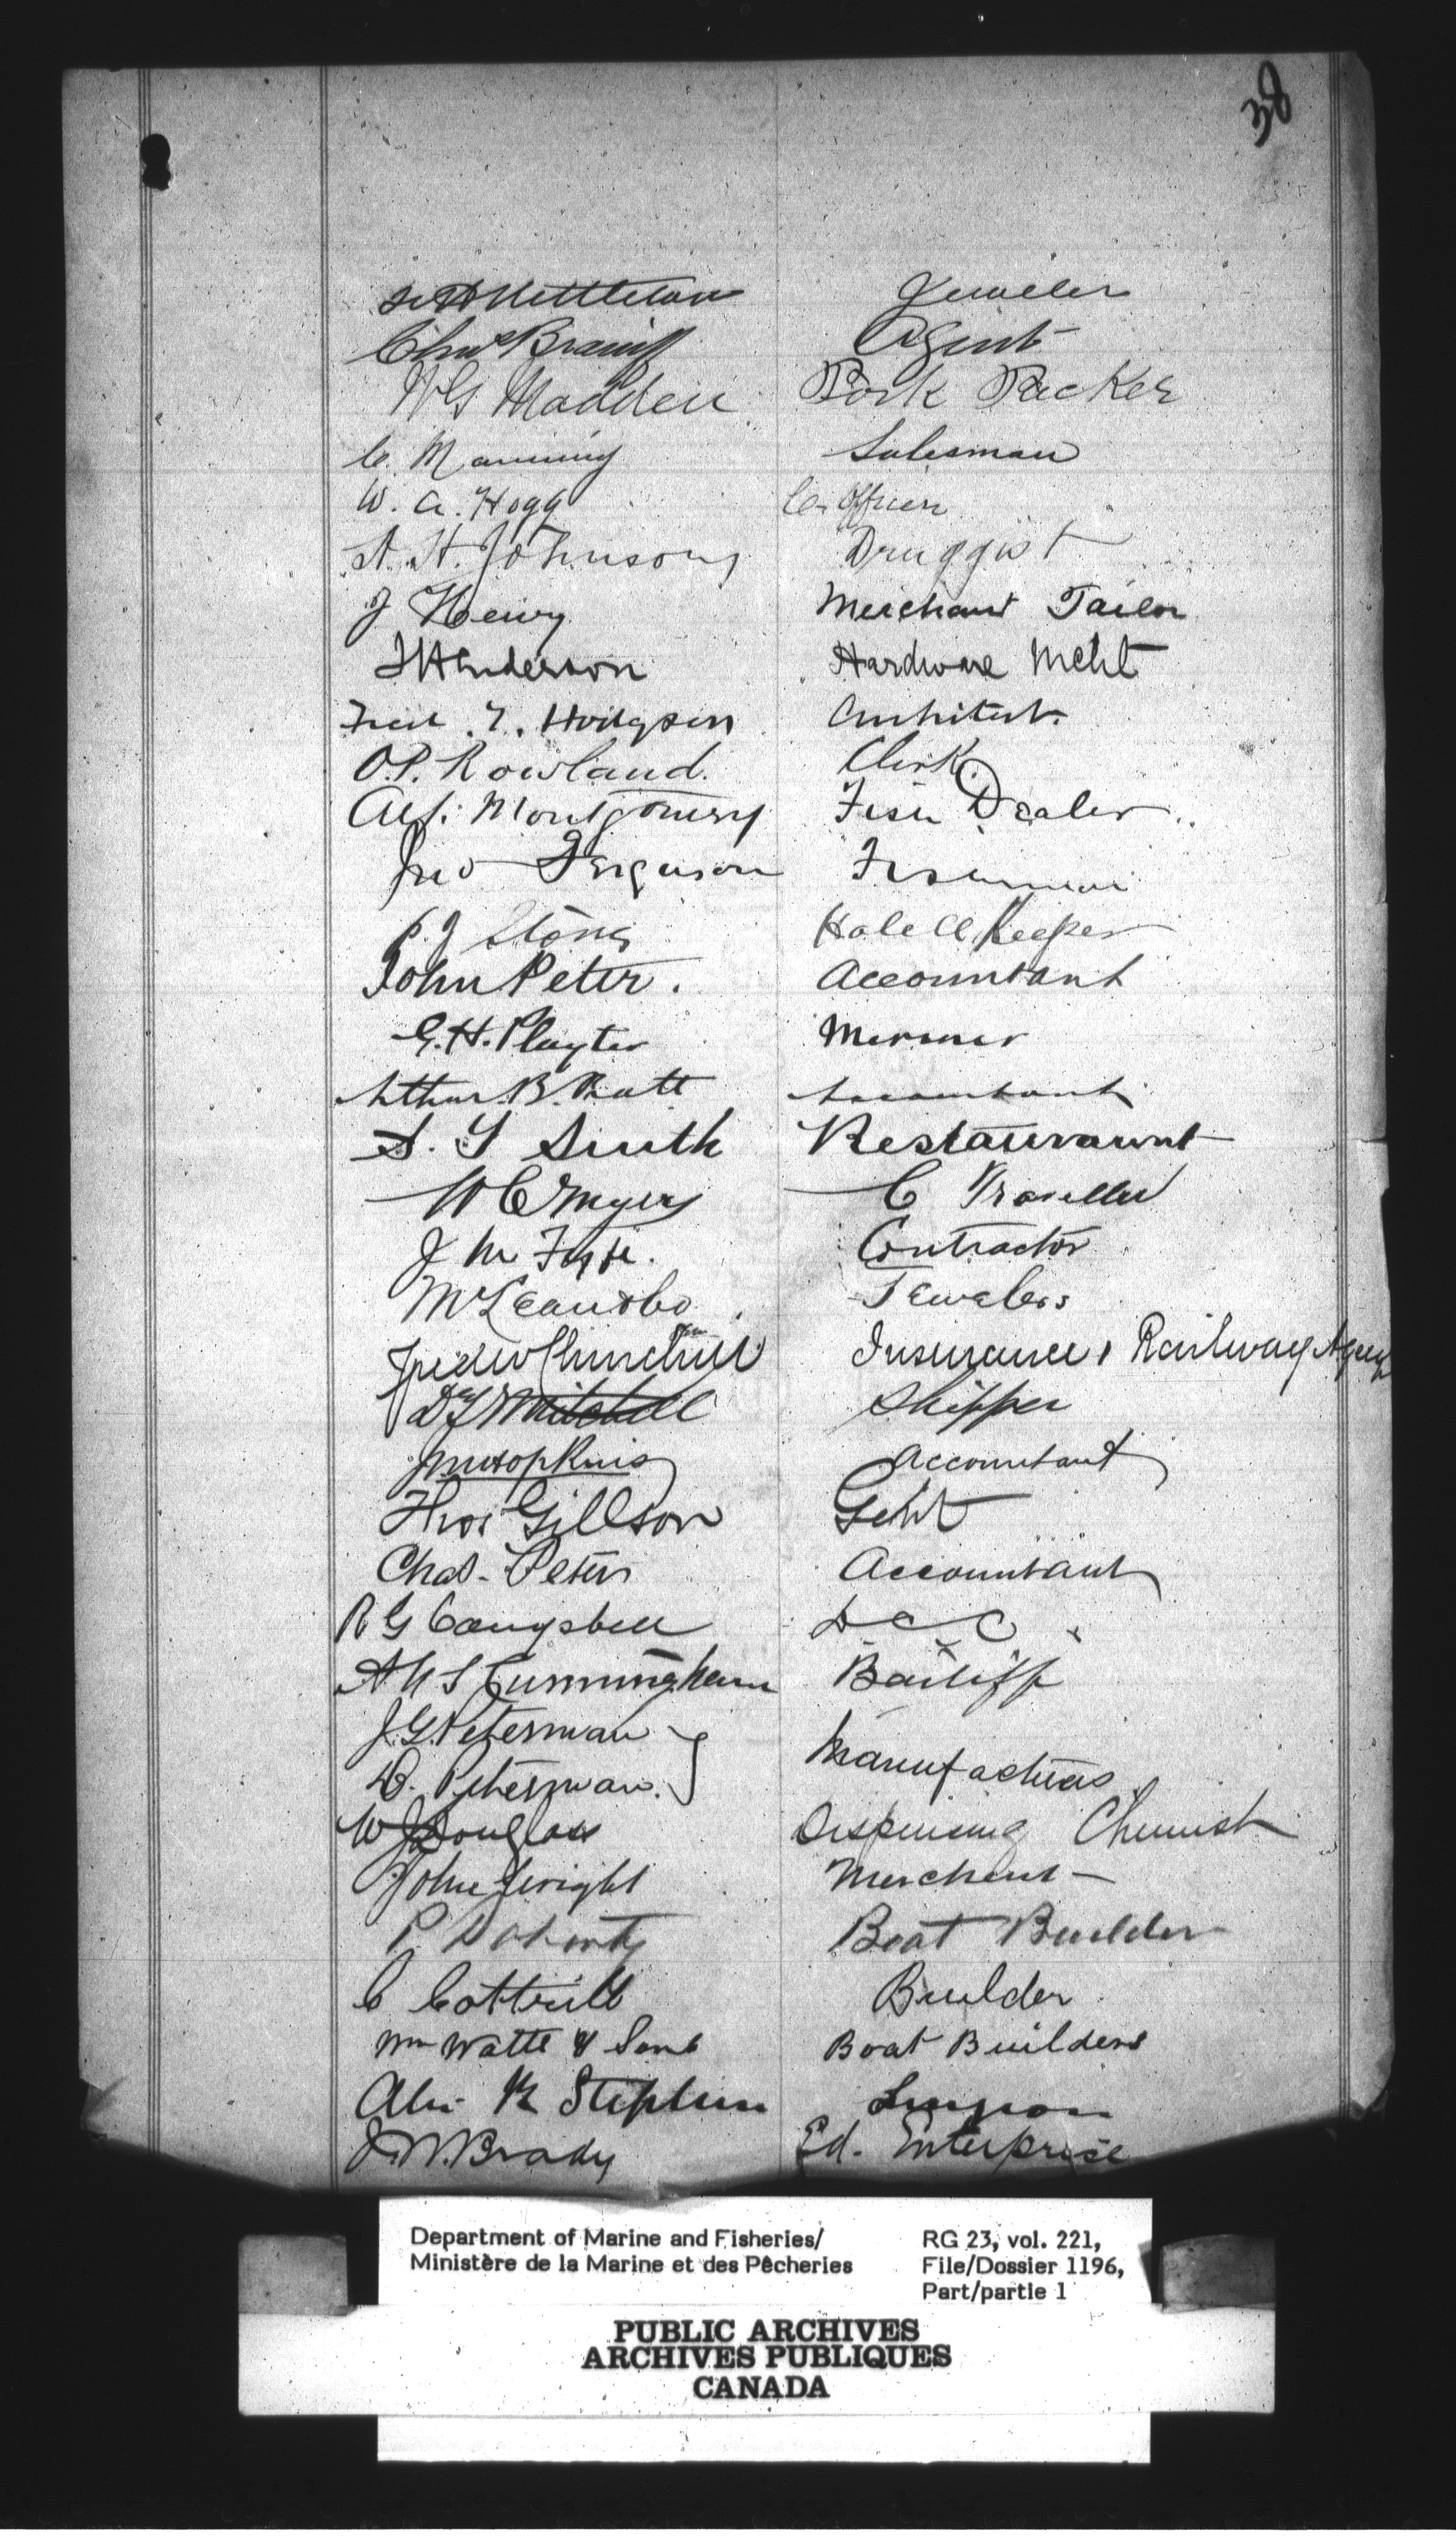 38
Nettleton Jeweler
Chas Agent
W G Madden Pork Packer
C. Manning Salesman
W. A. Hogg Co. Officer
A. H. Johnson Druggist
J Henry Merchant Tailor
J Henderson Hardware Mcht
Fred. T. Hodgson Architect
O.P. Rowland. Clerk
Alf. Montgomery Fish Dealer
Jno Ferguson Fisherman
P. J Stone Hotell Keeper
John Peter. Accountant
G. H. Playter Mariner
Arthur. B. Pratt Accountant
S. T Smith Restauraunt
W C Myers C Traveller
J M Fyfe. Contractor
McLean & Co Jewelers
Fred W Churchill Insurance & Railway Agency
D Mitchell Shipper
Jno Hopkins Accountant
Thos Gillson Gent
Chas. Peter Accountant
R G Campbell D C C
A M S Cunningham Bailiff
J. G. Peterman
D. Peterman. Manufacturers
W J Douglass Dispensing Chemist
John Wright Merchant
P. Doherty Boat Builder
C Cottrill Builder
Wm Watts & Sons Boat Builders
Alex R Stephen Surgeon
J. W. Brady Ed. Enterprise
Department of Marine and Fisheries/ RG 23, vol. 221,
Ministère de la Marine et des Pêcheries File/Dossier 1196,
Part/partie 1
PUBLIC ARCHIVES
ARCHIVES PUBLIQUES
CANADA